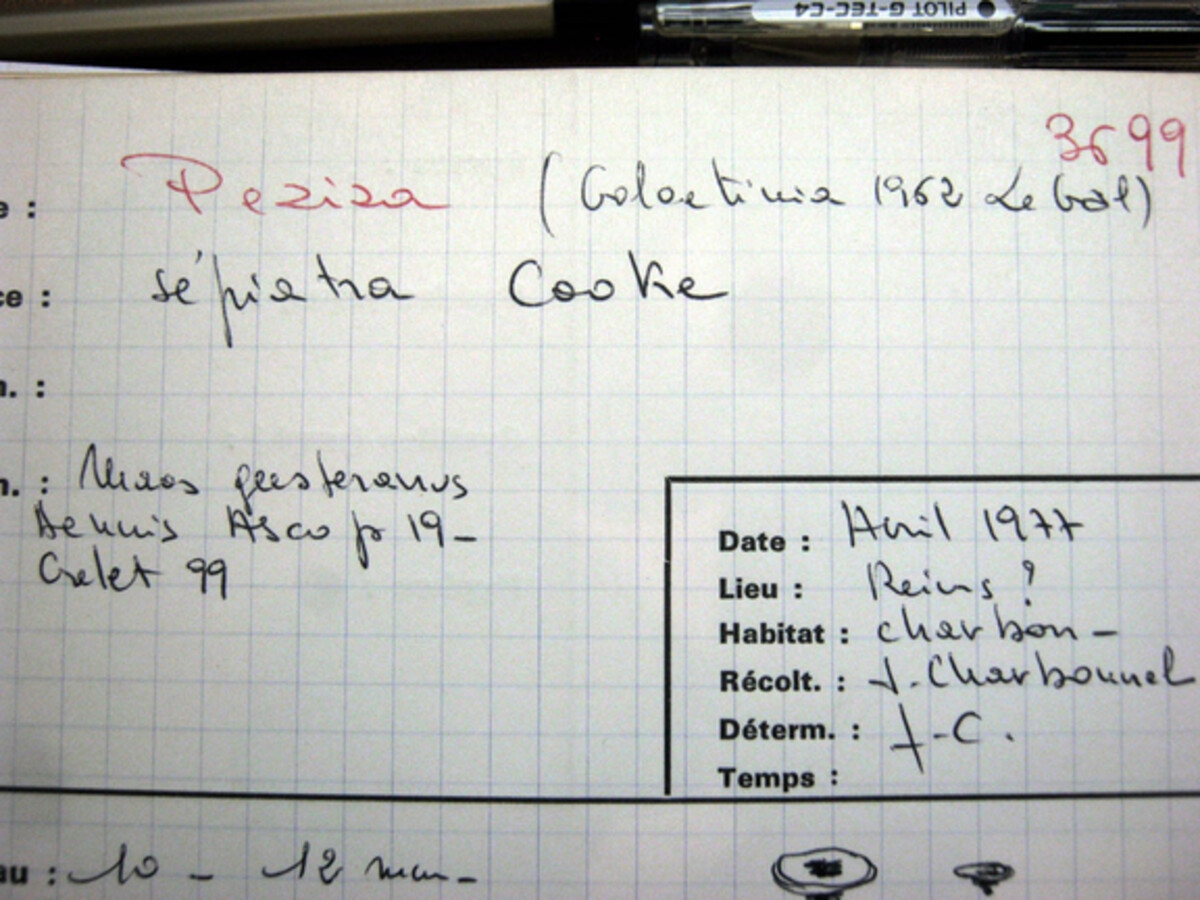 PILOT G-TEC-C4
3699
e : Peziza (Galactinia 1962 Le Gal)
ce : sépiatra Cooke
n. :
n. : Maas geesteranus
Dennis Asco p 19 -
Grelet 99
Date : Avril 1977
Lieu : Reims ?
Habitat : charbon -
Récolt. : J. Charbonnel
Déterm. : J-C.
Temps :
au : 10 - 12 mm -